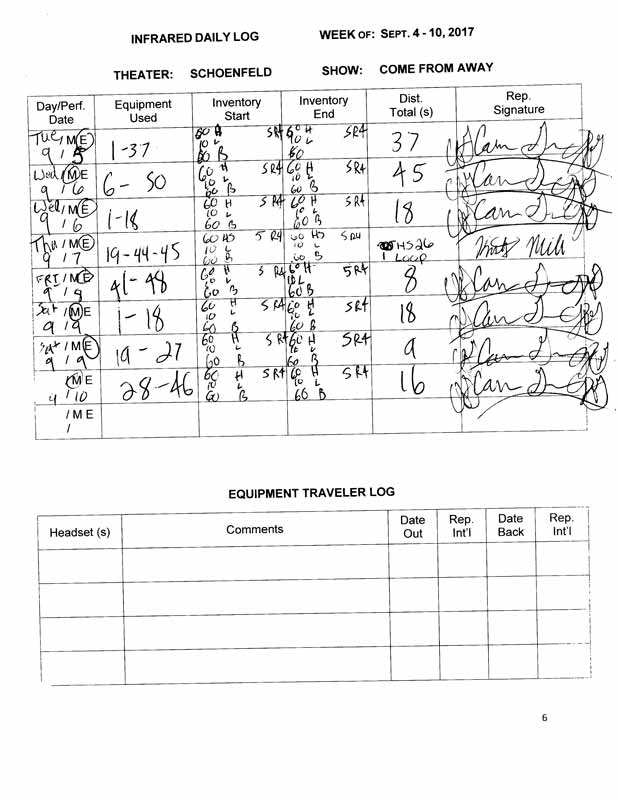 INFRARED DAILY LOG WEEK OF: SEPT. 4 - 10, 2017
THEATER: SCHOENFELD SHOW: COME FROM AWAY
Day/Perf. Date Equipment Used Inventory Start Inventory End Dist. Total (s) Rep. Signature
Tue/M E 9 / 5 1-37 60 H 5R4 10 L 60 B 60 H 5R4 10 L 60 37
Wed/M E 9 / 6 6- 50 60 H 5R4 10 L 60 B 60 H 5R4 10 L 60 B 45
Wed/M E 9 / 6 1-18 60 H 5R4 10 L 60 B 60 H 5R4 10 L 60 B 18
Thu/M E 9 / 7 19-44-45 60 HS 5R4 10 L 60 B 60 HS 5R4 10 L 60 B HS26 1 LOOP
FRI/M E 41-48 60 H 5R4 10 L 60 B 60 H 5R4 10 L 60 B 8
Sat/M E 9 / 9 1-18 60 H 5R4 10 L 60 B 60 H 5R4 10 L 60 B 18
Sat/M E 9 / 9 19-27 60 H 5R4 10 L 60 B 60 H 5R4 10 L 60 B 9
/M E 9 / 10 28-46 60 H 5R4 10 L 60 B 60 H 5R4 10 L 60 B 16
/ M E /
EQUIPMENT TRAVELER LOG
Headset (s) Comments Date Out Rep. Int'l Date Back Rep. Int'l
6